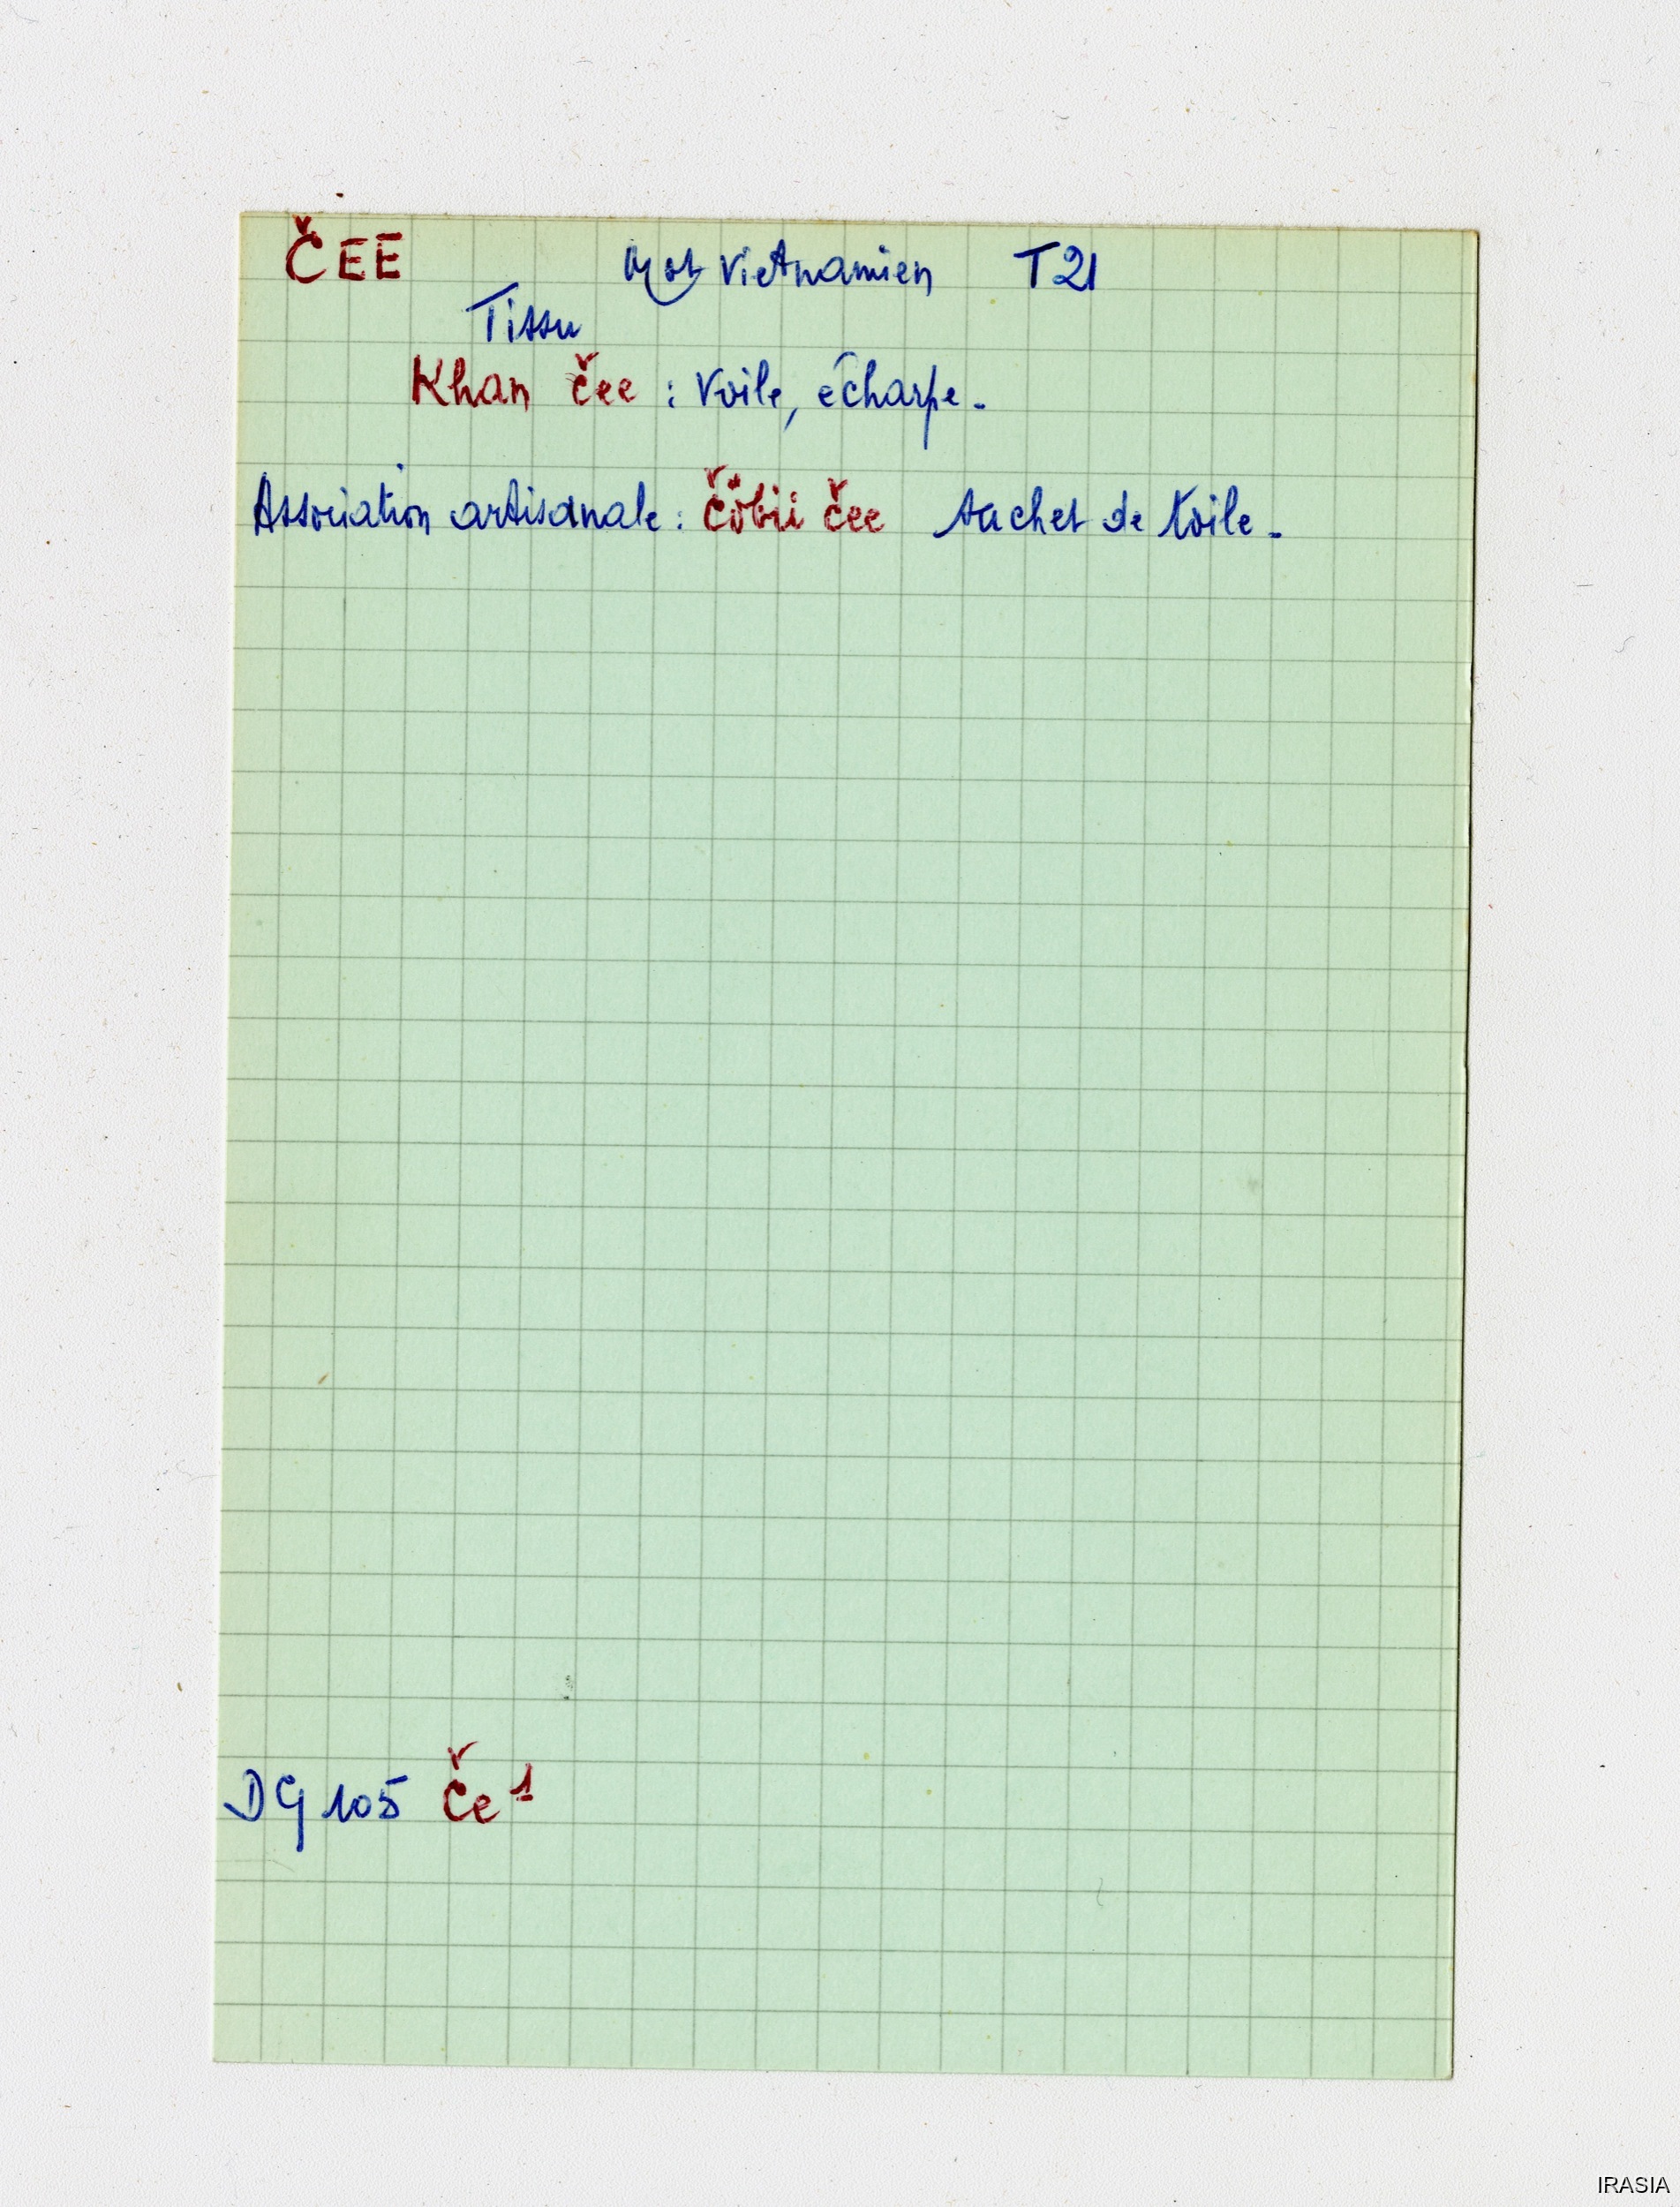 ČEE Mot Vietnamien T21
Tissu
Khan čee : Voile, écharpe.
Association artisanale : čöbii čee sachet de toile.
DG 105 Če¹
IRASIA